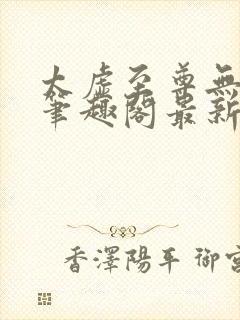 太虛至尊無
筆趣閣最新
香澤陽平 御宮